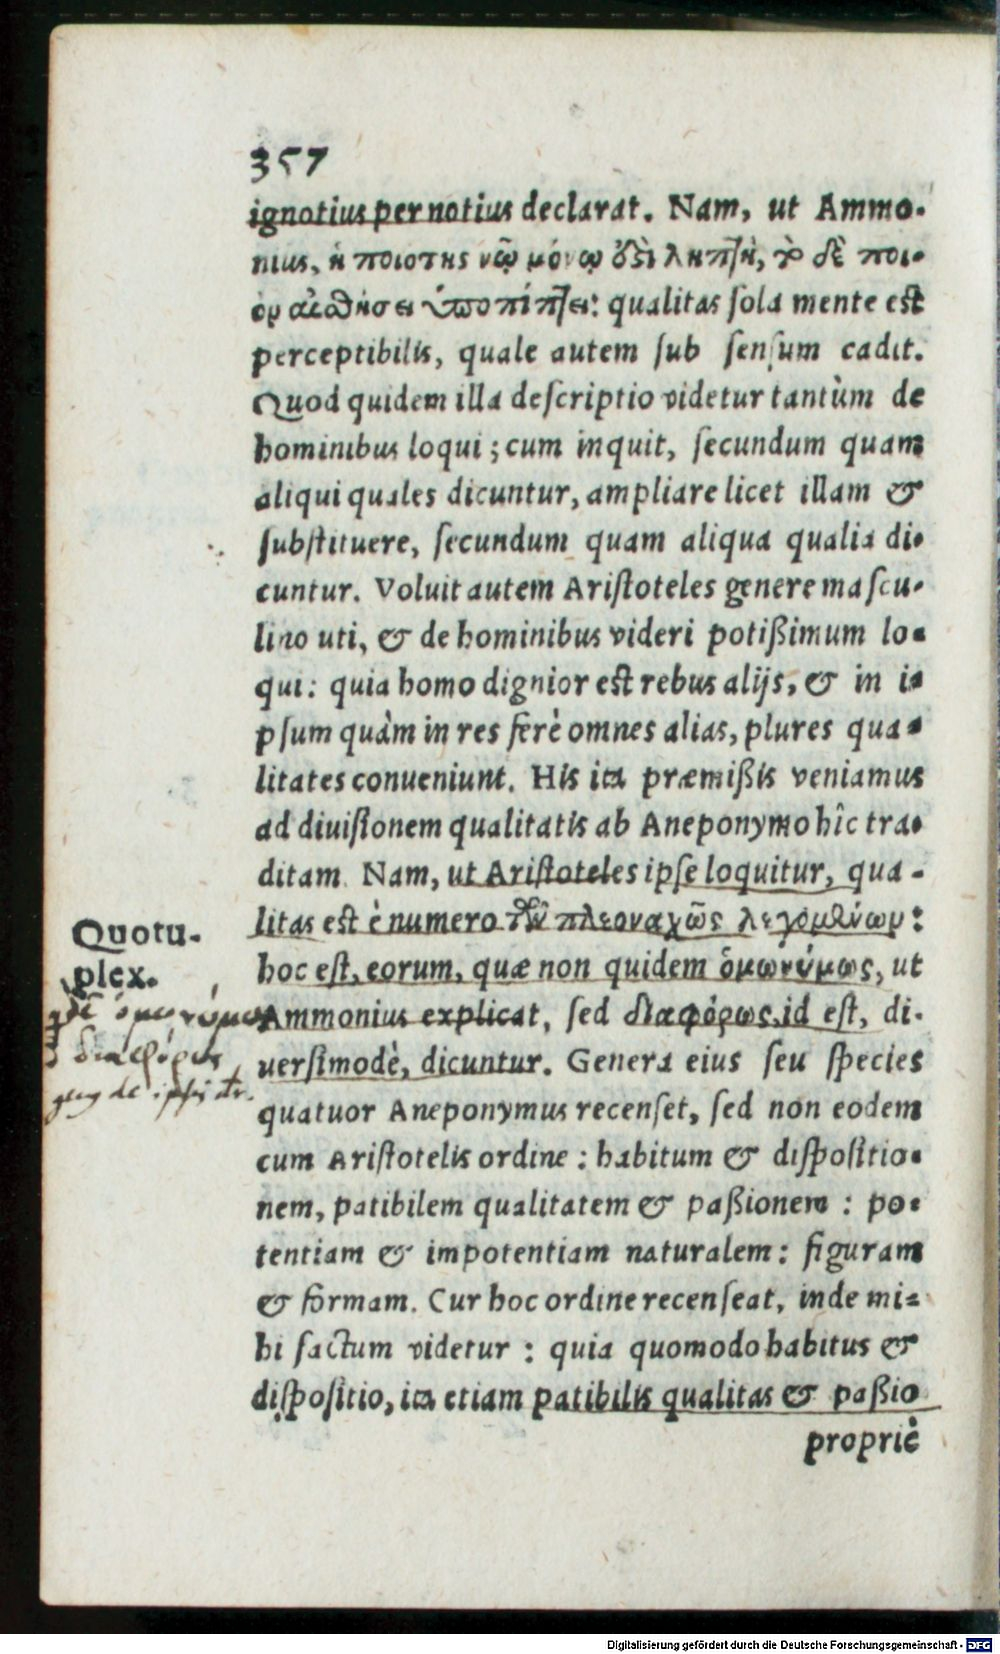 357
ignotius per notius declarat. Nam, ut Ammo-
nius, ἡ ποιότης νῷ μόνῳ ἐστὶ ληπτὴ, τὸ δὲ ποι-
ὸν αἰσθήσει ὑποπίπτει: qualitas sola mente est
perceptibilis, quale autem sub sensum cadit.
Quod quidem illa descriptio videtur tantùm de
hominibus loqui; cum inquit, secundum quam
aliqui quales dicuntur, ampliare licet illam &
substituere, secundum quam aliqua qualia di-
cuntur. Voluit autem Aristoteles genere mascu-
lino uti, & de hominibus videri potißimum lo-
qui: quia homo dignior est rebus alijs, & in i-
psum quàm in res ferè omnes alias, plures qua-
litates conueniunt. His ita præmißis veniamus
ad diuisionem qualitatis ab Aneponymo hîc tra-
ditam. Nam, ut Aristoteles ipse loquitur, qua-
litas est è numero τῶν πλεοναχῶς λεγομένων:
Quotu-
plex.
hoc est, eorum, quæ non quidem ὁμωνύμως, ut
Ammonius explicat, sed διαφόρως, id est, di-
uersimodè, dicuntur. Genera eius seu species
quatuor Aneponymus recenset, sed non eodem
cum Aristotelis ordine: habitum & dispositio-
nem, patibilem qualitatem & paßionem: po-
tentiam & impotentiam naturalem: figuram
& formam. Cur hoc ordine recenseat, inde mi-
hi factum videtur: quia quomodo habitus &
dispositio, ita etiam patibilis qualitas & paßio
propriè
ὁμωνύμως
διαφόρως
de ipsis
Digitalisierung gefördert durch die Deutsche Forschungsgemeinschaft - DFG